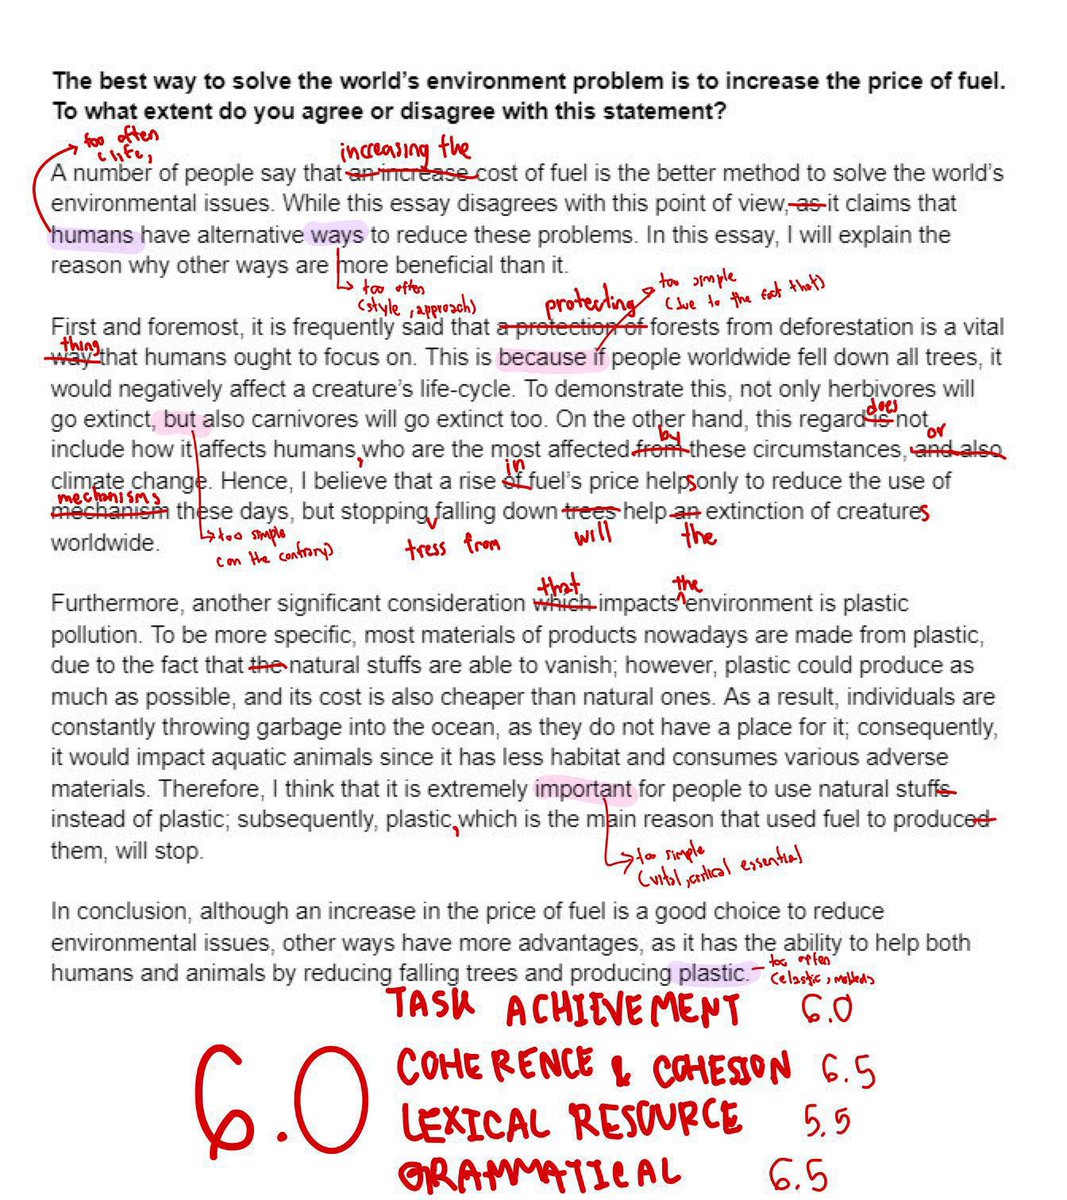 The best way to solve the world's environment problem is to increase the price of fuel.
To what extent do you agree or disagree with this statement?
too often
(life,
increasing the
A number of people say that an increase cost of fuel is the better method to solve the world's
environmental issues. While this essay disagrees with this point of view, as it claims that
humans have alternative ways to reduce these problems. In this essay, I will explain the
reason why other ways are more beneficial than it.
too often
(style, approach)
too simple
(due to the fact that)
protecting
First and foremost, it is frequently said that a protection of forests from deforestation is a vital
thing
way that humans ought to focus on. This is because if people worldwide fell down all trees, it
would negatively affect a creature's life-cycle. To demonstrate this, not only herbivores will
go extinct, but also carnivores will go extinct too. On the other hand, this regard is not
does
include how it affects humans, who are the most affected from these circumstances, and also
by
or
climate change. Hence, I believe that a rise of fuel's price helps only to reduce the use of
in
mechanisms
mechanism these days, but stopping falling down trees help an extinction of creatures
worldwide.
too simple
(on the contrary)
tress from
will
the
that
the
Furthermore, another significant consideration which impacts environment is plastic
pollution. To be more specific, most materials of products nowadays are made from plastic,
due to the fact that the natural stuffs are able to vanish; however, plastic could produce as
much as possible, and its cost is also cheaper than natural ones. As a result, individuals are
constantly throwing garbage into the ocean, as they do not have a place for it; consequently,
it would impact aquatic animals since it has less habitat and consumes various adverse
materials. Therefore, I think that it is extremely important for people to use natural stuffs
instead of plastic; subsequently, plastic, which is the main reason that used fuel to produced
them, will stop.
too simple
(vital, critical essential)
In conclusion, although an increase in the price of fuel is a good choice to reduce
environmental issues, other ways have more advantages, as it has the ability to help both
humans and animals by reducing falling trees and producing plastic.
too often
(elastic, molded)
TASK ACHIEVEMENT 6.0
6.0
COHERENCE & COHESION 6.5
LEXICAL RESOURCE 5.5
GRAMMATICAL 6.5